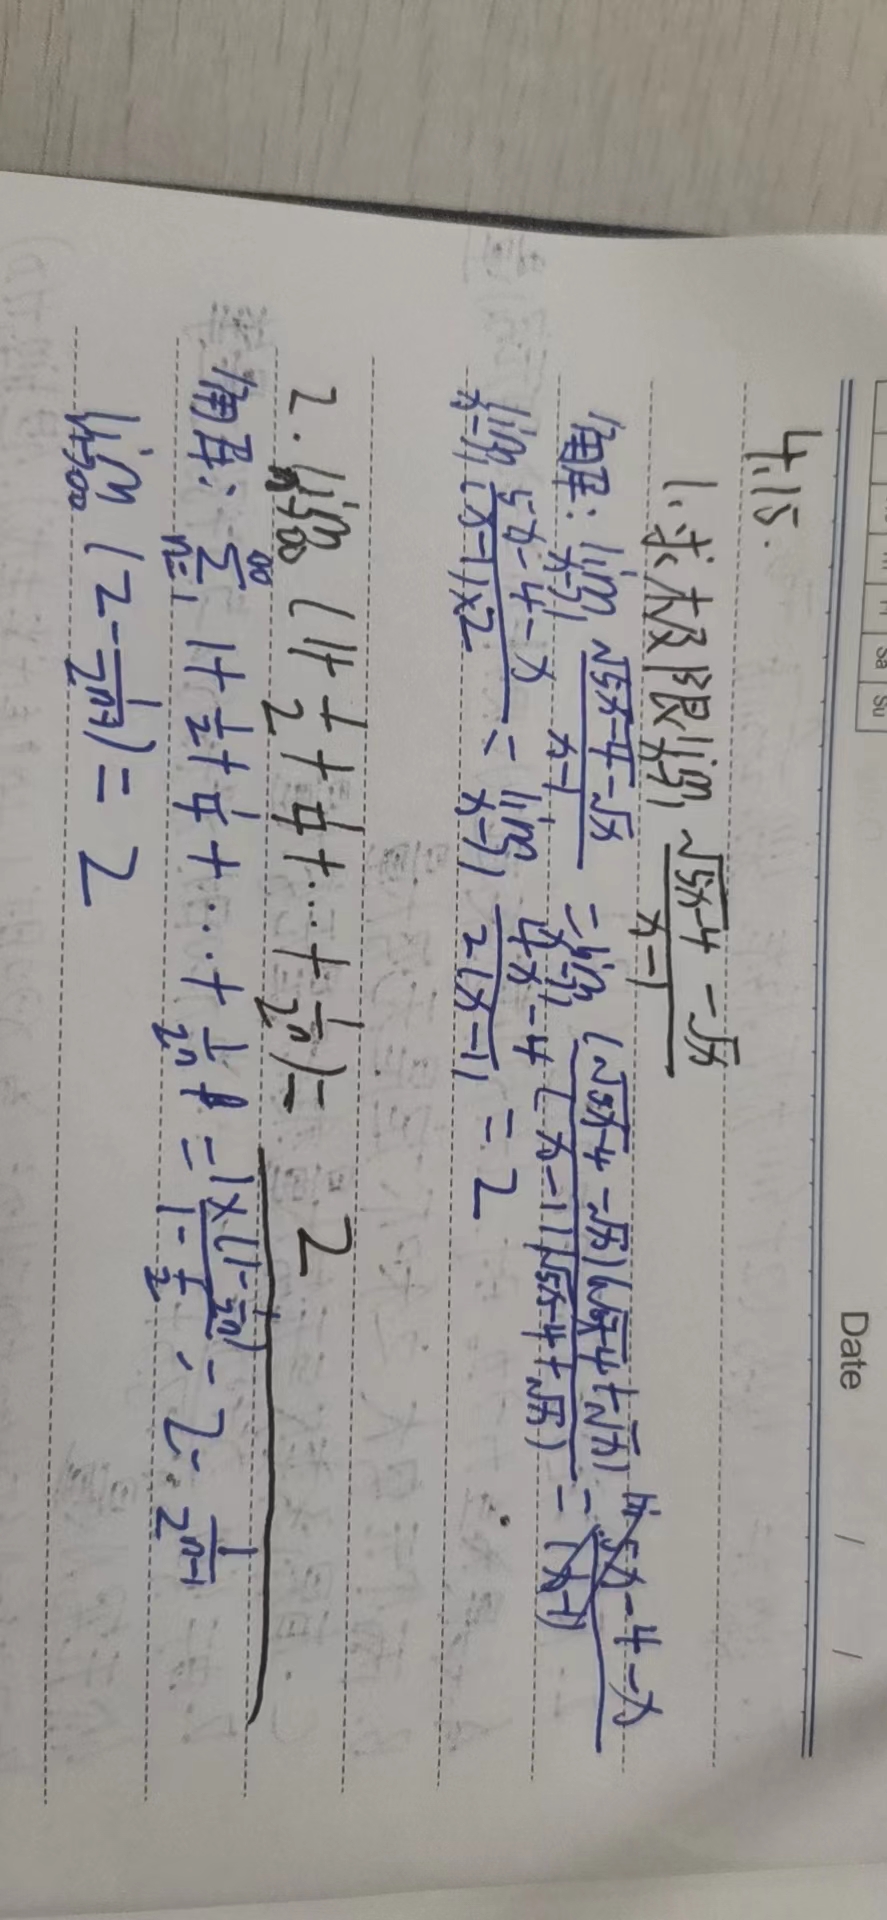 Sa Su
Date / /
4.15.
1.求极限lim x→1 (√(5x-4) - √x)/(x-1)
解: lim x→1 (√(5x-4) - √x)/(x-1) = lim x→1 (√(5x-4) - √x)(√(5x-4) + √x)/((x-1)(√(5x-4) + √x)) =
lim x→1 (5x-4-x)/((x-1)×2) = lim x→1 (4x-4)/(2(x-1)) = 2
2. lim n→∞ (1+1/2+1/4+...+1/2^n) = 2
解: ∑ n=1 ∞ 1+1/2+1/4+...+1/2^n = 1×(1-1/2^n)/(1-1/2) = 2-1/2^(n-1)
lim n→∞ (2-1/2^(n-1)) = 2